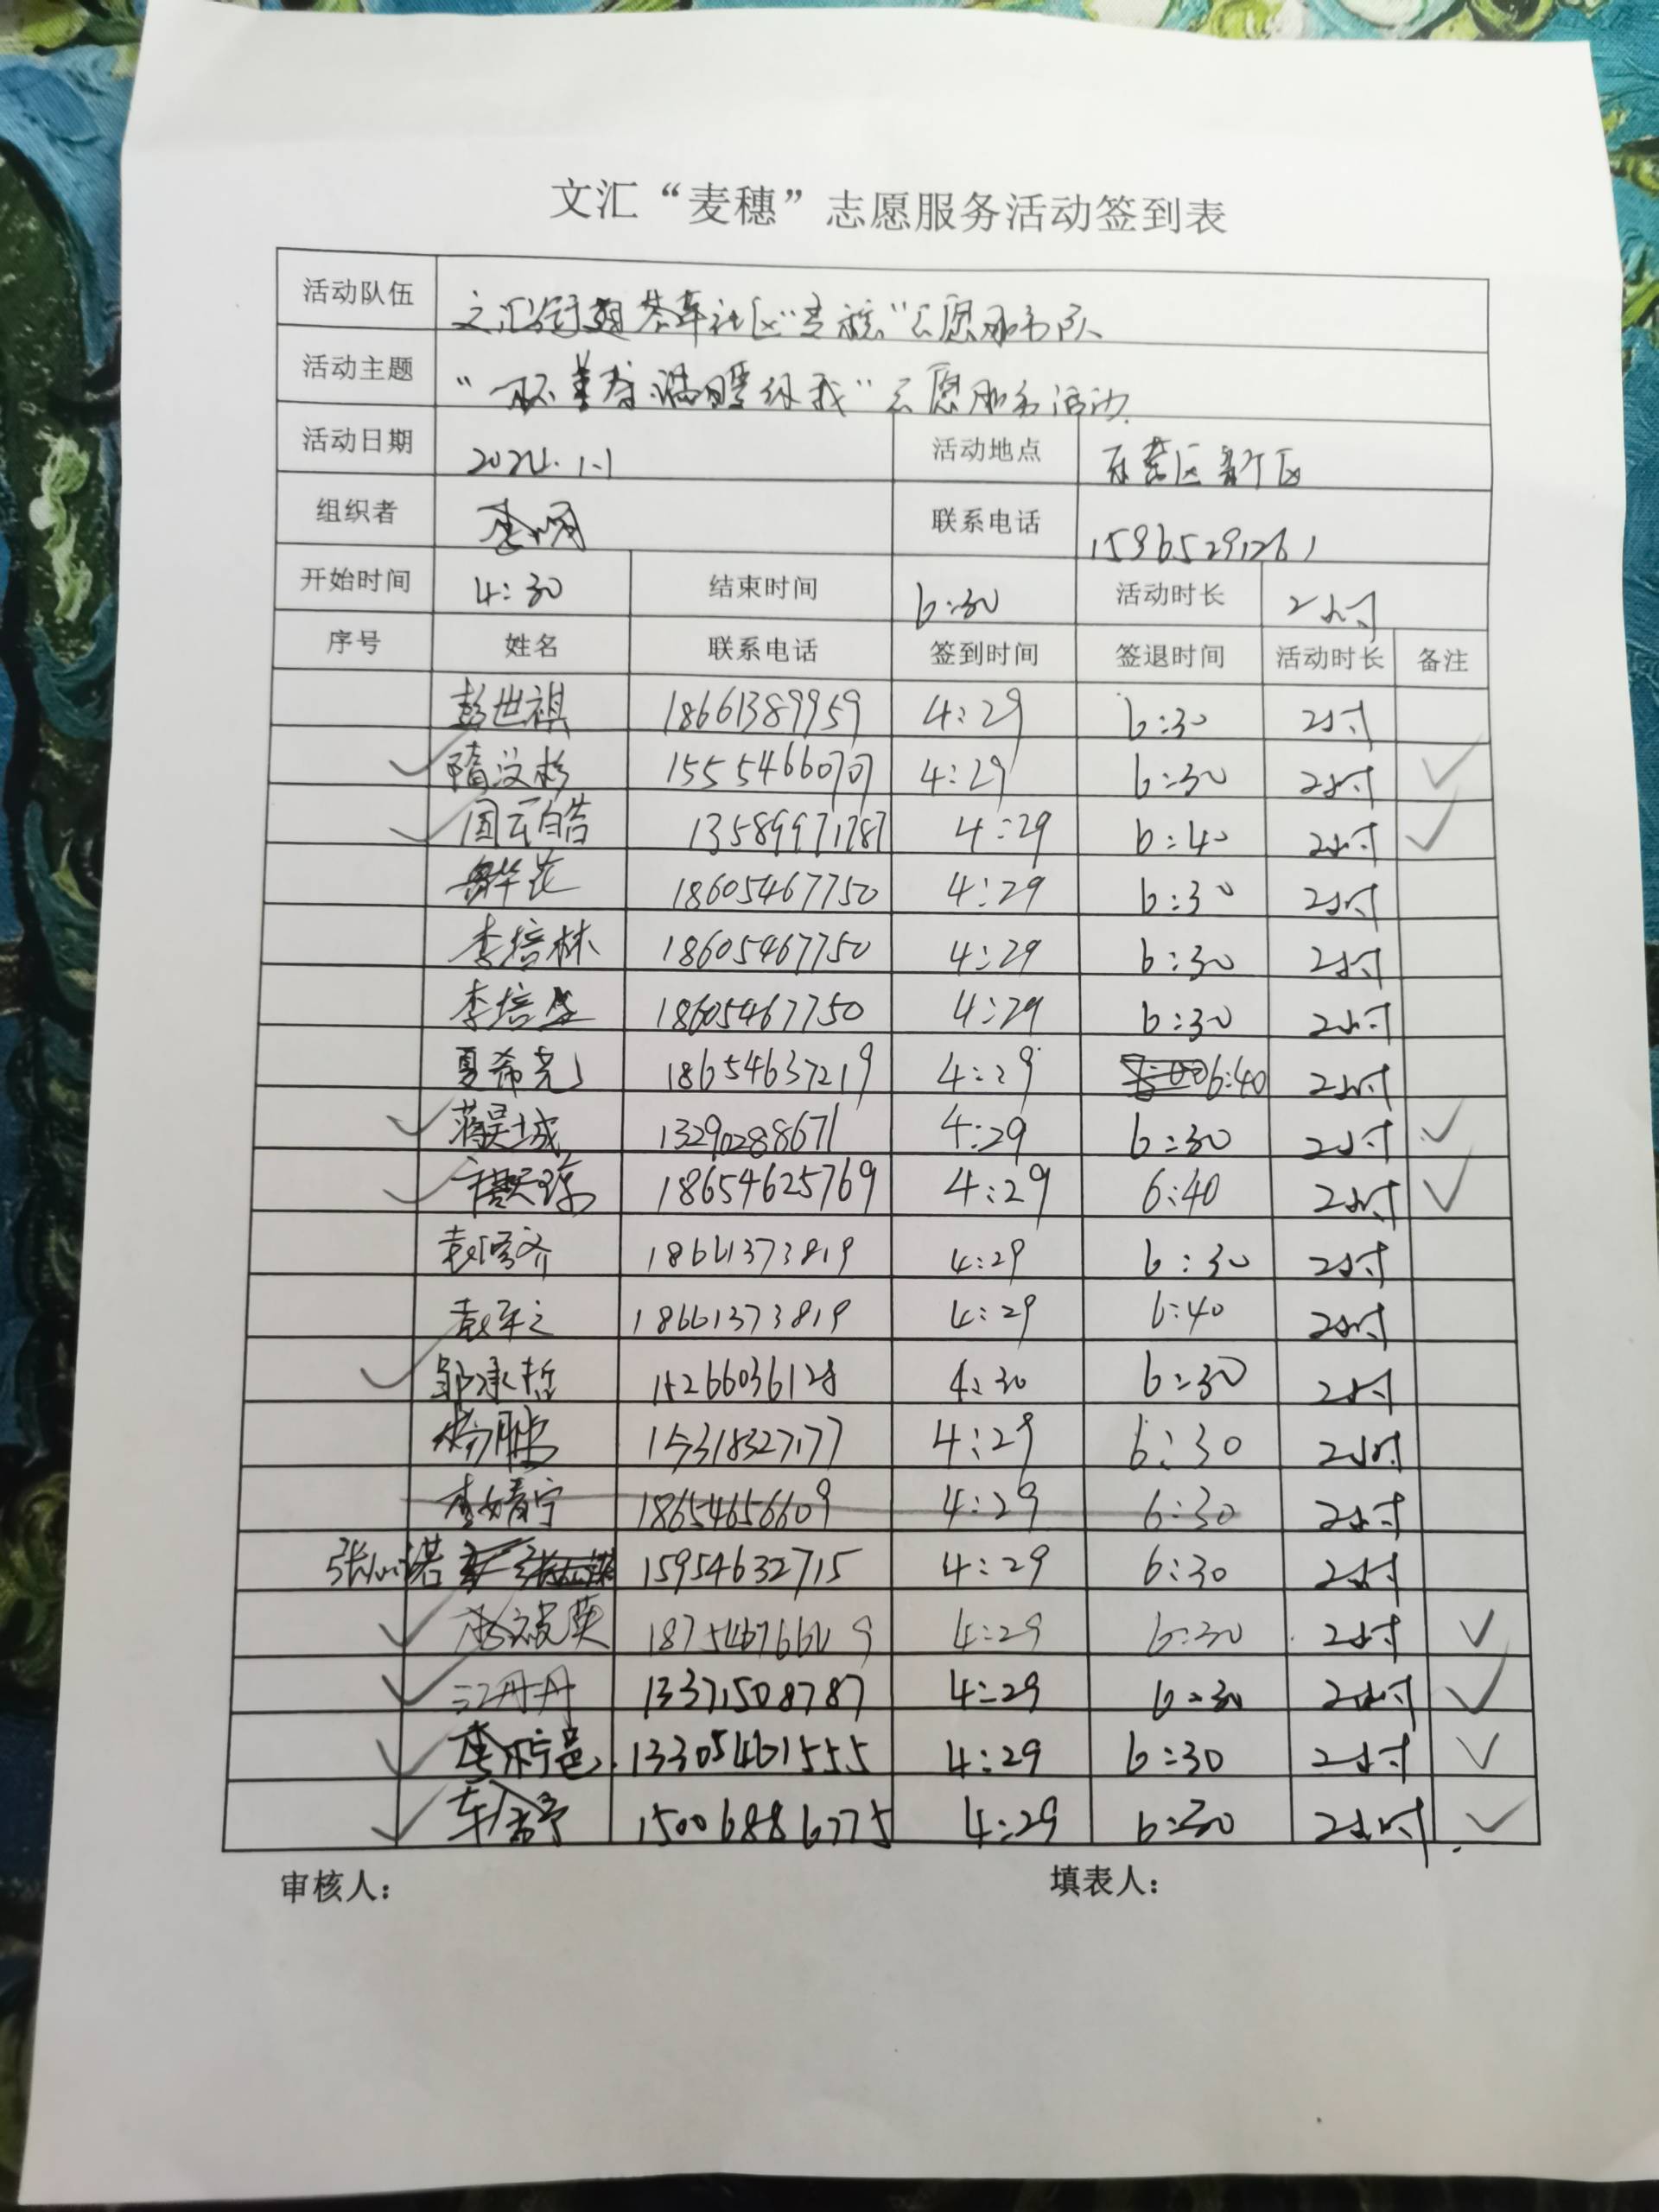 文汇“麦穗”志愿服务活动签到表
活动队伍 文汇 社区“麦穗”志愿服务队
活动主题 “ ”志愿服务活动
活动日期 2024.1.1 活动地点 东营区
组织者 李 联系电话 15965291261
开始时间 4:30 结束时间 6:30 活动时长 2小时
序号 姓名 联系电话 签到时间 签退时间 活动时长 备注
彭世祺 18661389959 4:29 6:30 2小时
隋汶杉 15554660707 4:29 6:30 2小时 ✓
国云皓 13589971787 4:29 6:40 2小时 ✓
18605467750 4:29 6:30 2小时
李培林 18605467750 4:29 6:30 2小时
李培 18605467750 4:29 6:30 2小时
夏希尧 18654637219 4:29 6:40 2小时
蒋昊城 13290288671 4:29 6:30 2小时 ✓
18654625769 4:29 6:40 2小时 ✓
袁 齐 18661373819 4:29 6:30 2小时
袁 之 18661373819 4:29 6:40 2小时
邹承哲 15266036128 4:30 6:30 2小时
杨 15318327177 4:29 6:30 2小时
李婧宁 18654656609 4:29 6:30 2小时
张心诺 15954632715 4:29 6:30 2小时
英 4:29 6:30 2小时 ✓
江丹丹 13371508787 4:29 6:30 2小时 ✓
李 13305461555 4:29 6:30 2小时 ✓
车 15006886775 4:29 6:30 2小时 ✓
审核人： 填表人：